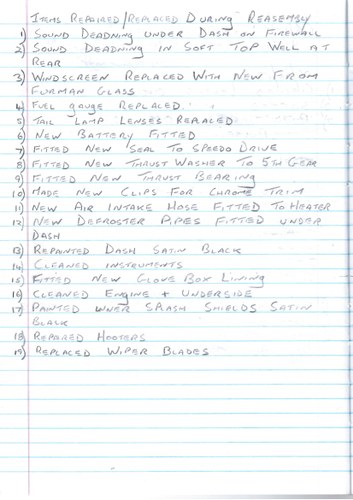 Items Repaired/Replaced During Reasembly
1) Sound Deadning under Dash on Firewall
2) Sound Deadning in Soft Top Well at
Rear
3) Windscreen Replaced With New From
Furman Glass
4) Fuel gauge Replaced.
5) Tail Lamp Lenses Replaced
6) New Battery Fitted
7) Fitted New Seal To Speedo Drive
8) Fitted New Thrust Washer To 5th Gear
9) Fitted New Thrust Bearing
10) Made New Clips For Chrome Trim
11) New Air Intake Hose Fitted To Heater
12) New Defroster Pipes Fitted under
Dash
13) Repainted Dash Satin Black
14) Cleaned instruments
15) Fitted New Glove Box Lining
16) Cleaned Engine + Underside
17) Painted inner Splash Shields Satin
Black
18) Repared Hooters
19) Replaced Wiper Blades